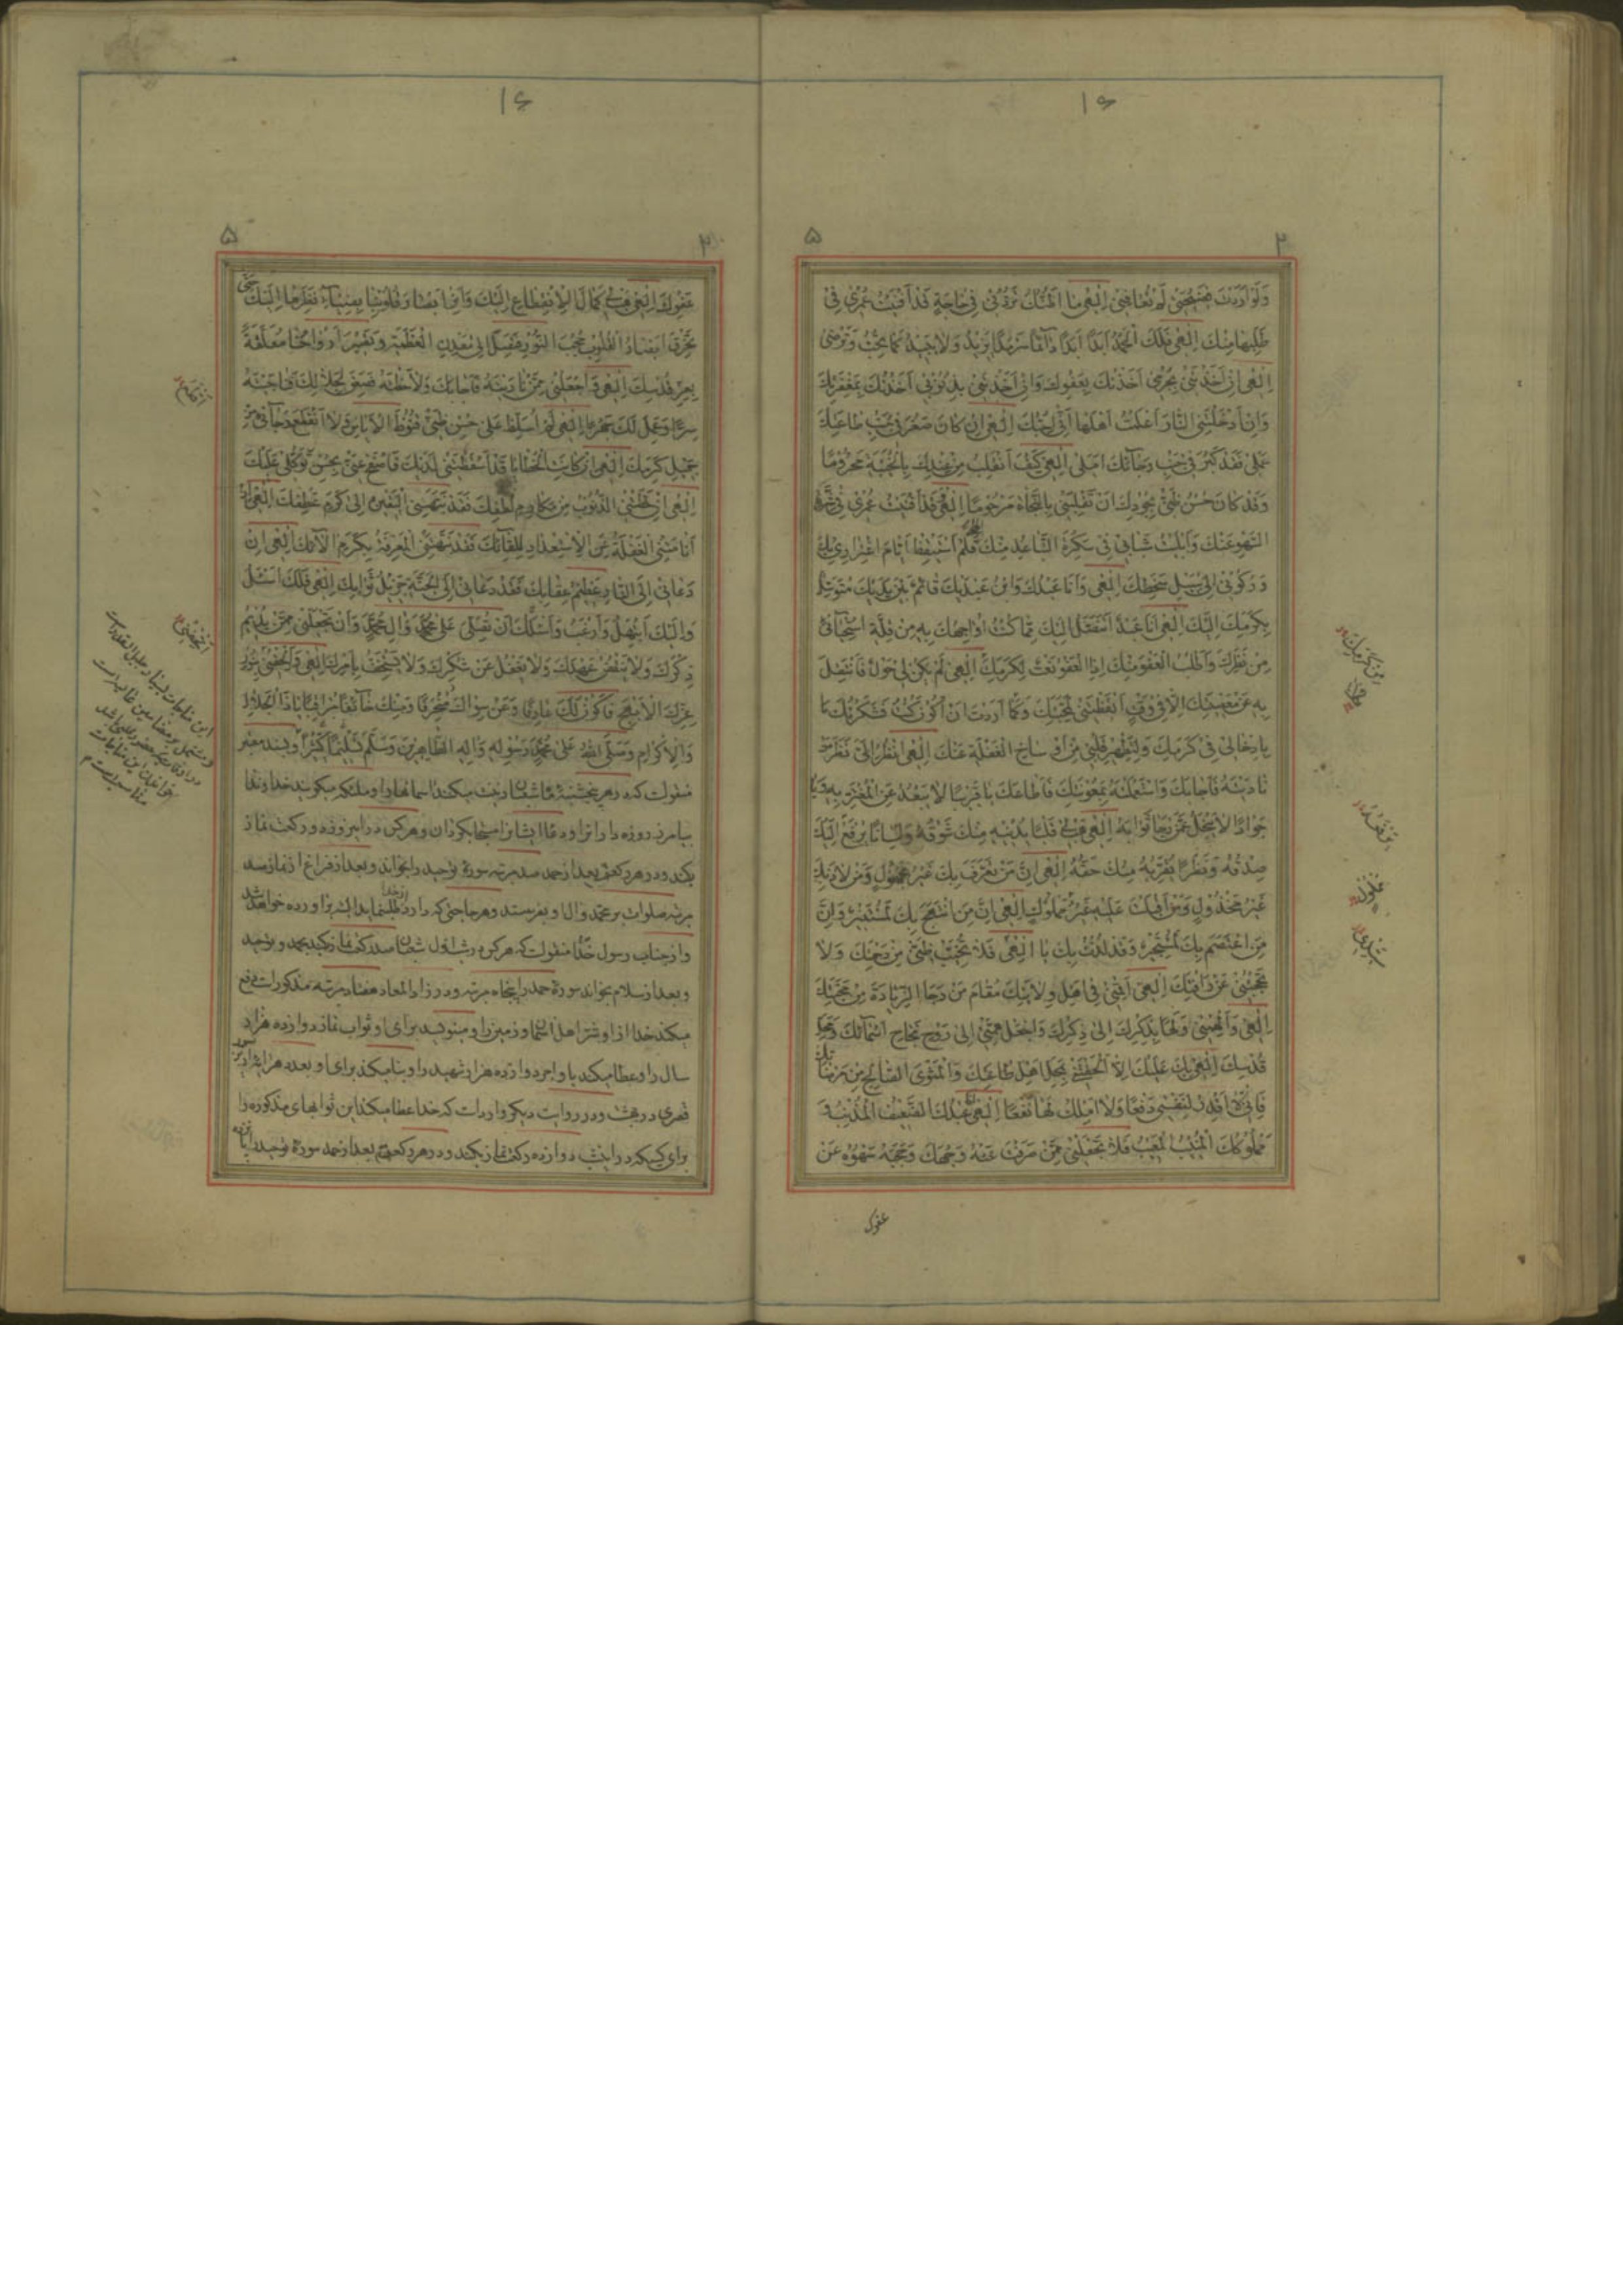 ۱۶
۲ ۵
وَلَوْ اَرَدْتَ فَضِيحَتى لَمْ تُعَافِنى اِلهى ما اَظُنُّكَ تَرُدُّنى فى حاجَةٍ قَدْ اَفْنَيْتُ عُمْرى فى
طَلَبِها مِنْكَ اِلهى فَلَكَ الْحَمْدُ اَبَدًا اَبَدًا دآئِمًا سَرْمَدًا يَزيدُ وَلا يَبيدُ كَما تُحِبُّ وَتَرْضى
اِلهى اِنْ اَخَذْتَنى بِجُرْمى اَخَذْتُكَ بِعَفْوِكَ وَاِنْ اَخَذْتَنى بِذُنُوبى اَخَذْتُكَ بِمَغْفِرَتِكَ
وَاِنْ اَدْخَلْتَنِى النّارَ اَعْلَمْتُ اَهْلَها اَنّى اُحِبُّكَ اِلهى اِنْ كانَ صَغُرَ فى جَنْبِ طاعَتِكَ
عَمَلى فَقَدْ كَبُرَ فى جَنْبِ رَجآئِكَ اَمَلى اِلهى كَيْفَ اَنْقَلِبُ مِنْ عِنْدِكَ بِالْخَيْبَةِ مَحْرُومًا
وَقَدْ كانَ حُسْنُ ظَنّى بِجُودِكَ اَنْ تَقْلِبَنى بِالنَّجاةِ مَرْحُومًا اِلهى قَدْ اَفْنَيْتُ عُمْرى فى شِرَّةِ
السَّهْوِ عَنْكَ وَاَبْلَيْتُ شَبابى فى سَكْرَةِ التَّباعُدِ مِنْكَ فَلَمْ اَسْتَيْقِظْ اَيّامَ اغْتِرارى بِكَ
وَرُكُونى اِلى سَبيلِ سَخَطِكَ اِلهى وَاَنَا عَبْدُكَ وَابْنُ عَبْدَيْكَ قائِمٌ بَيْنَ يَدَيْكَ مُتَوَسِّلٌ
بِكَرَمِكَ اِلَيْكَ اِلهى اَنَا عَبْدٌ اَتَنَصَّلُ اِلَيْكَ مِمّا كُنْتُ اُواجِهُكَ بِهِ مِنْ قِلَّةِ اسْتِحْيآئى
مِنْ نَظَرِكَ وَاَطْلُبُ الْعَفْوَ مِنْكَ اِذِ الْعَفْوُ نَعْتٌ لِكَرَمِكَ اِلهى لَمْ يَكُنْ لى حَوْلٌ فَاَنْتَقِلَ
بِهِ عَنْ مَعْصِيَتِكَ اِلّا فى وَقْتٍ اَيْقَظْتَنى لِمَحَبَّتِكَ وَكَما اَرَدْتَ اَنْ اَكُونَ كُنْتُ فَشَكَرْتُكَ
بِاِدْخالى فى كَرَمِكَ وَلِتَطْهيرِ قَلْبى مِنْ اَوْساخِ الْغَفْلَةِ عَنْكَ اِلهى اُنْظُرْ اِلَىَّ نَظَرَ مَنْ
نادَيْتَهُ فَاَجابَكَ وَاسْتَعْمَلْتَهُ بِمَعُونَتِكَ فَاَطاعَكَ يا قَريبًا لا يَبْعُدُ عَنِ الْمُغْتَرِّ بِهِ وَيا
جَوادًا لا يَبْخَلُ عَمَّنْ رَجا ثَوابَهُ اِلهى هَبْ لى قَلْبًا يُدْنيهِ مِنْكَ شَوْقُهُ وَلِسانًا يُرْفَعُ اِلَيْكَ
صِدْقُهُ وَنَظَرًا يُقَرِّبُهُ مِنْكَ حَقُّهُ اِلهى اِنَّ مَنْ تَعَرَّفَ بِكَ غَيْرُ مَجْهُولٍ وَمَنْ لاذَ بِكَ
غَيْرُ مَخْذُولٍ وَمَنْ اَقْبَلْتَ عَلَيْهِ غَيْرُ مَمْلُوكٍ اِلهى اِنَّ مَنِ انْتَهَجَ بِكَ لَمُسْتَنيرٌ وَاِنَّ
مَنِ اعْتَصَمَ بِكَ لَمُسْتَجيرٌ وَقَدْ لُذْتُ بِكَ يا اِلهى فَلا تُخَيِّبْ ظَنّى مِنْ رَحْمَتِكَ وَلا
تَحْجُبْنى عَنْ رَاْفَتِكَ اِلهى اَقِمْنى فى اَهْلِ وِلايَتِكَ مُقامَ مَنْ رَجَا الزِّيادَةَ مِنْ مَحَبَّتِكَ
اِلهى وَاَلْهِمْنى وَلَهًا بِذِكْرِكَ اِلى ذِكْرِكَ وَاجْعَلْ هِمَّتى اِلى رَوْحِ نَجاحِ اَسْمآئِكَ وَمَحَلِّ
قُدْسِكَ اِلهى بِكَ عَلَيْكَ اِلّا اَلْحَقْتَنى بِمَحَلِّ اَهْلِ طاعَتِكَ وَالْمَثْوَى الصّالِحِ مِنْ مَرْضاتِكَ
فَاِنّى لا اَقْدِرُ لِنَفْسى دَفْعًا وَلا اَمْلِكُ لَها نَفْعًا اِلهى اَنَا عَبْدُكَ الضَّعيفُ الْمُذْنِبُ وَ
مَمْلُوكُكَ الْمُنيبُ الْمَعيبُ فَلا تَجْعَلْنى مِمَّنْ صَرَفْتَ عَنْهُ وَجْهَكَ وَحَجَبَهُ سَهْوُهُ عَنْ
عفوك
۱۶
۲ ۵
عَفْوِكَ اِلهى هَبْ لى كَمالَ الْاِنْقِطاعِ اِلَيْكَ وَاَنِرْ اَبْصارَ قُلُوبِنا بِضِيآءِ نَظَرِها اِلَيْكَ حَتّى
تَخْرِقَ اَبْصارُ الْقُلُوبِ حُجُبَ النُّورِ فَتَصِلَ اِلى مَعْدِنِ الْعَظَمَةِ وَتَصيرَ اَرْواحُنا مُعَلَّقَةً
بِعِزِّ قُدْسِكَ اِلهى وَاجْعَلْنى مِمَّنْ نادَيْتَهُ فَاَجابَكَ وَلاحَظْتَهُ فَصَعِقَ لِجَلالِكَ فَناجَيْتَهُ
سِرًّا وَعَمِلَ لَكَ جَهْرًا اِلهى لَمْ اُسَلِّطْ عَلى حُسْنِ ظَنّى قُنُوطَ الْاَياسِ وَلَا انْقَطَعَ رَجآئى مِنْ
جَميلِ كَرَمِكَ اِلهى اِنْ كانَتِ الْخَطايا قَدْ اَسْقَطَتْنى لَدَيْكَ فَاصْفَحْ عَنّى بِحُسْنِ تَوَكُّلى عَلَيْكَ
اِلهى اِنْ حَطَّتْنى الذُّنُوبُ مِنْ مَكارِمِ لُطْفِكَ فَقَدْ نَبَّهَنى الْيَقينُ اِلى كَرَمِ عَطْفِكَ اِلهى اِنْ
اَنامَتْنى الْغَفْلَةُ عَنِ الْاِسْتِعْدادِ لِلِقآئِكَ فَقَدْ نَبَّهَتْنى الْمَعْرِفَةُ بِكَرَمِ آلآئِكَ اِلهى اِنْ
دَعانى اِلَى النّارِ عَظيمُ عِقابِكَ فَقَدْ دَعانى اِلَى الْجَنَّةِ جَزيلُ ثَوابِكَ اِلهى فَلَكَ اَسْئَلُ
وَاِلَيْكَ اَبْتَهِلُ وَاَرْغَبُ وَاَسْئَلُكَ اَنْ تُصَلِّىَ عَلى مُحَمَّدٍ وَآلِ مُحَمَّدٍ وَاَنْ تَجْعَلَنى مِمَّنْ يُديمُ
ذِكْرَكَ وَلا يَنْقُضُ عَهْدَكَ وَلا يَغْفُلُ عَنْ شُكْرِكَ وَلا يَسْتَخِفُّ بِاَمْرِكَ اِلهى وَاَلْحِقْنى بِنُورِ
عِزِّكَ الْاَبْهَجِ فَاَكُونَ لَكَ عارِفًا وَعَنْ سِواكَ مُنْحَرِفًا وَمِنْكَ خآئِفًا مُراقِبًا يا ذَا الْجَلالِ
وَالْاِكْرامِ وَصَلَّى اللهُ عَلى مُحَمَّدٍ رَسُولِهِ وَآلِهِ الطّاهِرينَ وَسَلَّمَ تَسْليمًا كَثيرًا وبسند معتبر
منقولست که در هر پنجشنبهٔ ماه شعبان زینت میکنند آسمانها را و ملئکه میگویند خداوندا
بیامرز روزه داران او را و دعای ایشانرا مستجاب گردان و هر کس در این روز دو رکعت نماز
بکند و در هر رکعتی بعد از حمد صد مرتبه سورهٔ توحید را بخواند و بعد از فراغ از نماز صد
مرتبه صلوات بر محمد و آل او بفرستد و هر حاجتی که دارد از خدا طلب نماید البته براورده خواهد شد
و از جناب رسول خدا منقولست که هر کس در شب اول شعبان صد رکعت نماز بکند بحمد و توحید
و بعد از سلام بخواند سورهٔ حمد را پنجاه مرتبه و در زاد المعاد هفتاد مرتبه مذکورات دفع
میکند خدا از او شر اهل آسمان و زمین را و مینویسد برای او ثواب نماز دوازده هزار
سال را و عطا میکند باو اجر دوازده هزار شهید را و بنا میکند برای او بعدد هر سوره
قصری در بهشت و در روایت دیگر وارداست که خدا عطا میکند این ثوابهای مذکوره را
برای کسیکه در اینشب دوازده رکعت نماز بکند و در هر رکعتی بعد از حمد سورهٔ توحید را پانزده
مِنْ كَرَمِكَ
این مناجات بسیار جلیل القدر است
و مشتمل بر مضامین عالیه است